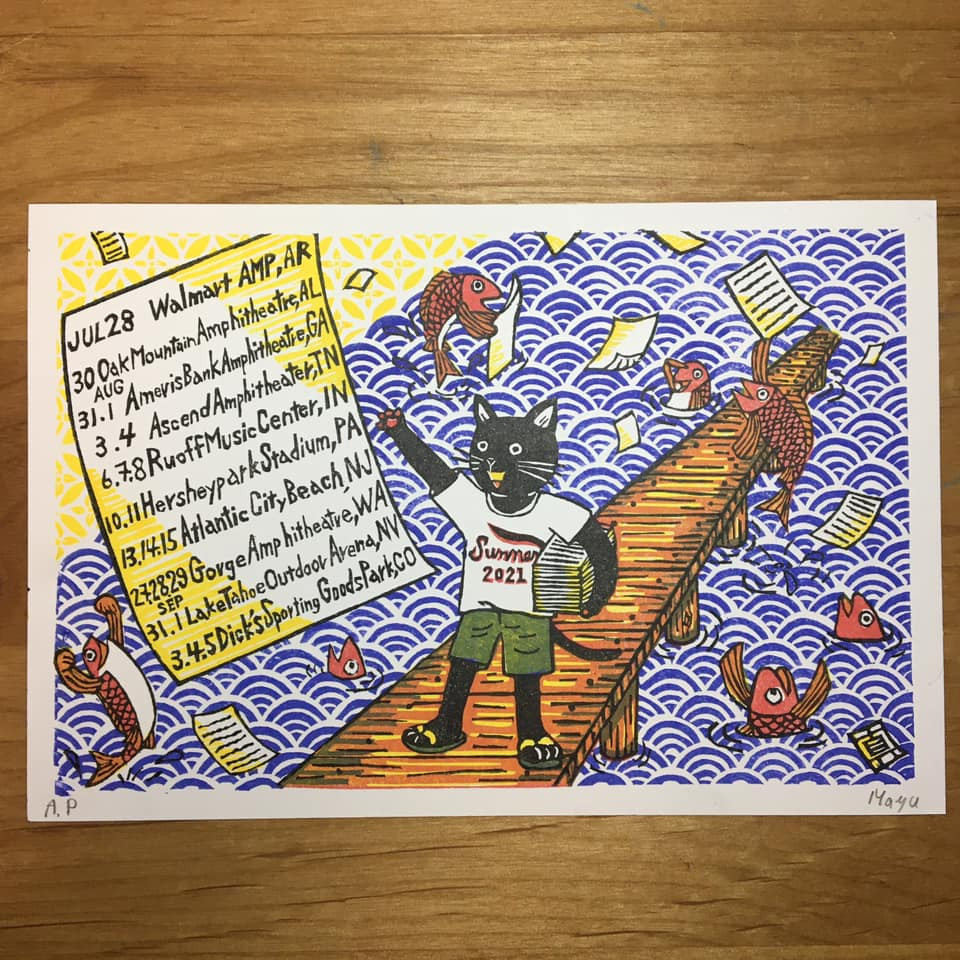 JUL 28 Walmart AMP, AR
30 Oak Mountain Amphitheatre, AL
AUG
31.1 Ameris Bank Amphitheatre, GA
3.4 Ascend Amphitheater, TN
6.7.8 Ruoff Music Center, IN
10.11 Hersheypark Stadium, PA
13.14.15 Atlantic City Beach, NJ
27.28.29 Gorge Amphitheatre, WA
SEP
31.1 Lake Tahoe Outdoor Arena, NV
3.4.5 Dick's Sporting Goods Park, CO
Summer
2021
A.P
Mayu